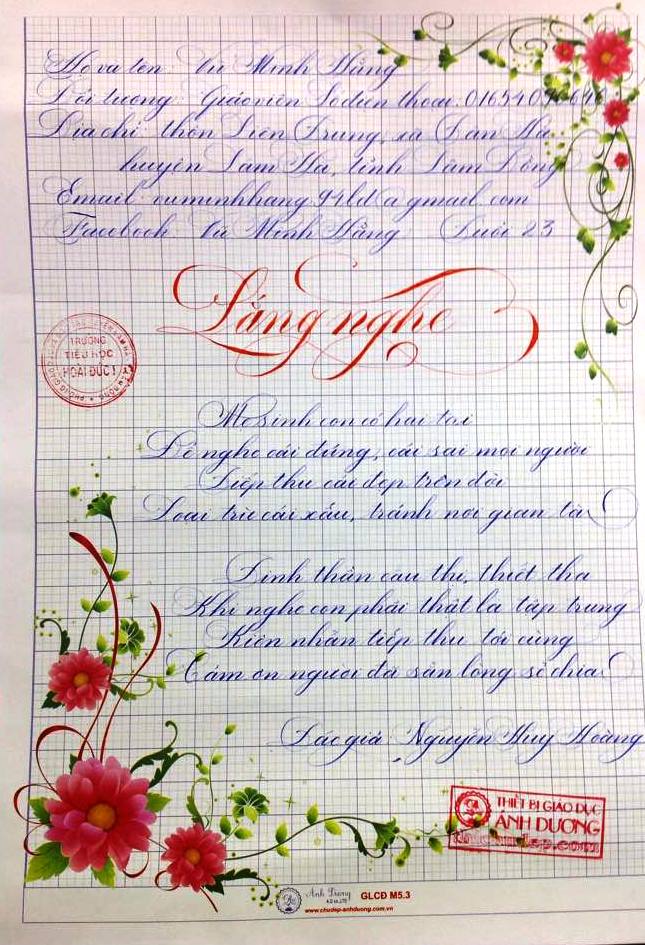 Họ và tên Vũ Minh Hằng
Đối tượng: Giáo viên Số điện thoại: 01654090
Địa chỉ: thôn Liên Trung, xã Đan Hà
huyện Lâm Hà, tỉnh Lâm Đồng
Email: vuminhhang94ld@gmail.com
Facebook Vũ Minh Hằng Dưới 23
Lắng nghe
TRƯỜNG
TIỂU HỌC
HOÀI ĐỨC I
Mẹ sinh con có hai tai
Để nghe cái đúng, cái sai mọi người
Tiếp thu cái đẹp trên đời
Loại trừ cái xấu, tránh nơi gian tà
Tinh thần cầu thị, thiết tha
Khi nghe con phải thật là tập trung
Kiên nhẫn tiếp thu tới cùng
Cảm ơn người đã sẵn lòng sẻ chia
Tác giả Nguyễn Huy Hoàng
THIẾT BỊ GIÁO DỤC
ÁNH DƯƠNG
Ánh Dương
GLCĐ M5.3
www.chudep-anhduong.com.vn